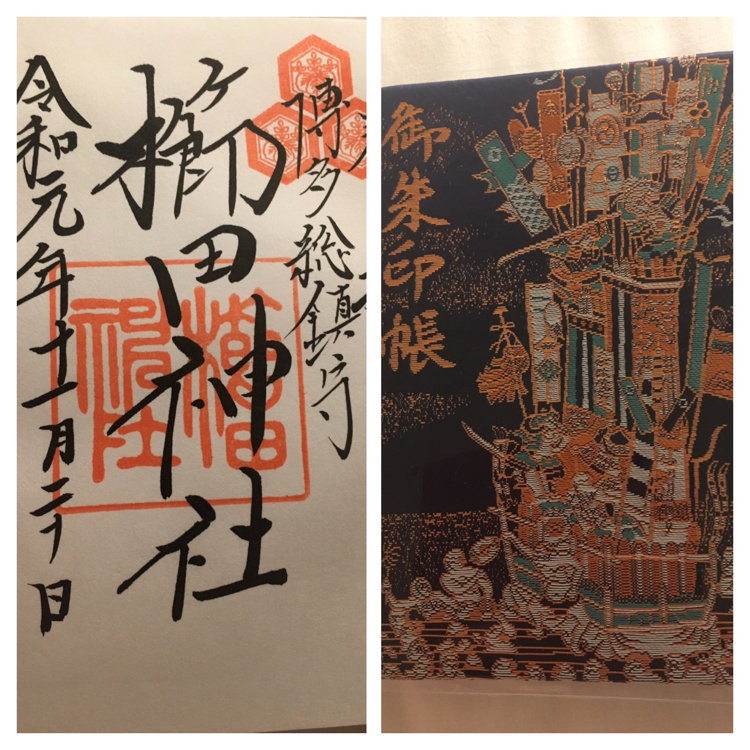 博多総鎮守
櫛田神社
令和元年十一月二十日
櫛田
神社
御朱印帳